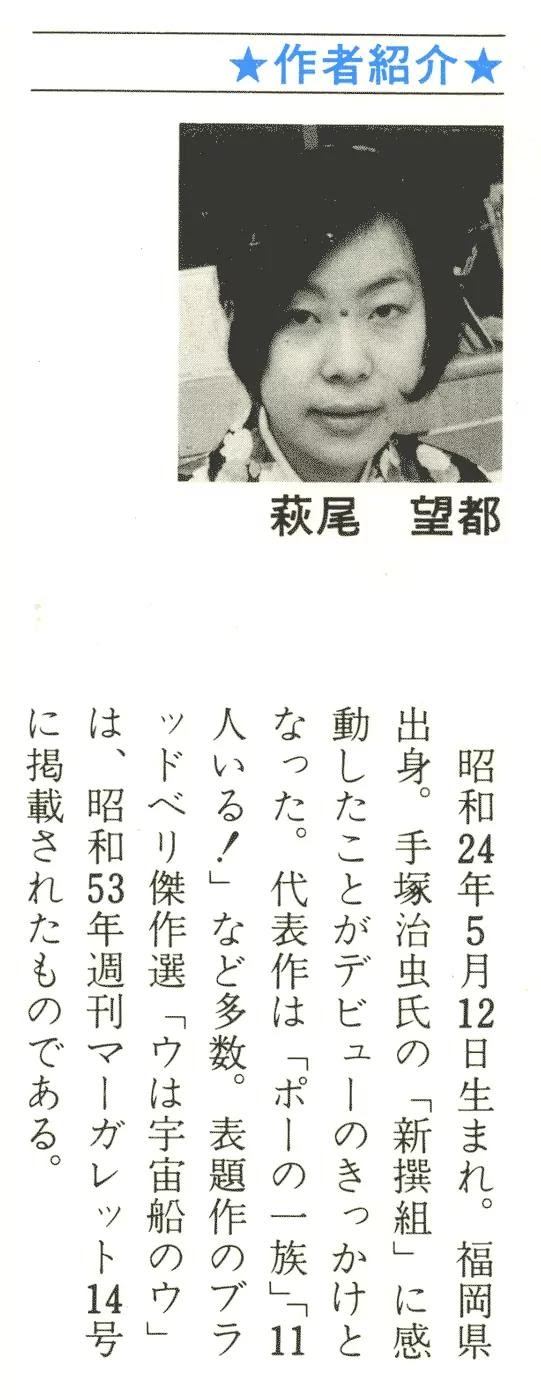 ★作者紹介★
萩尾　望都
昭和24年5月12日生まれ。福岡県
出身。手塚治虫氏の「新撰組」に感
動したことがデビューのきっかけと
なった。代表作は「ポーの一族」「11
人いる！」など多数。表題作のブラ
ッドベリ傑作選「ウは宇宙船のウ」
は、昭和53年週刊マーガレット14号
に掲載されたものである。